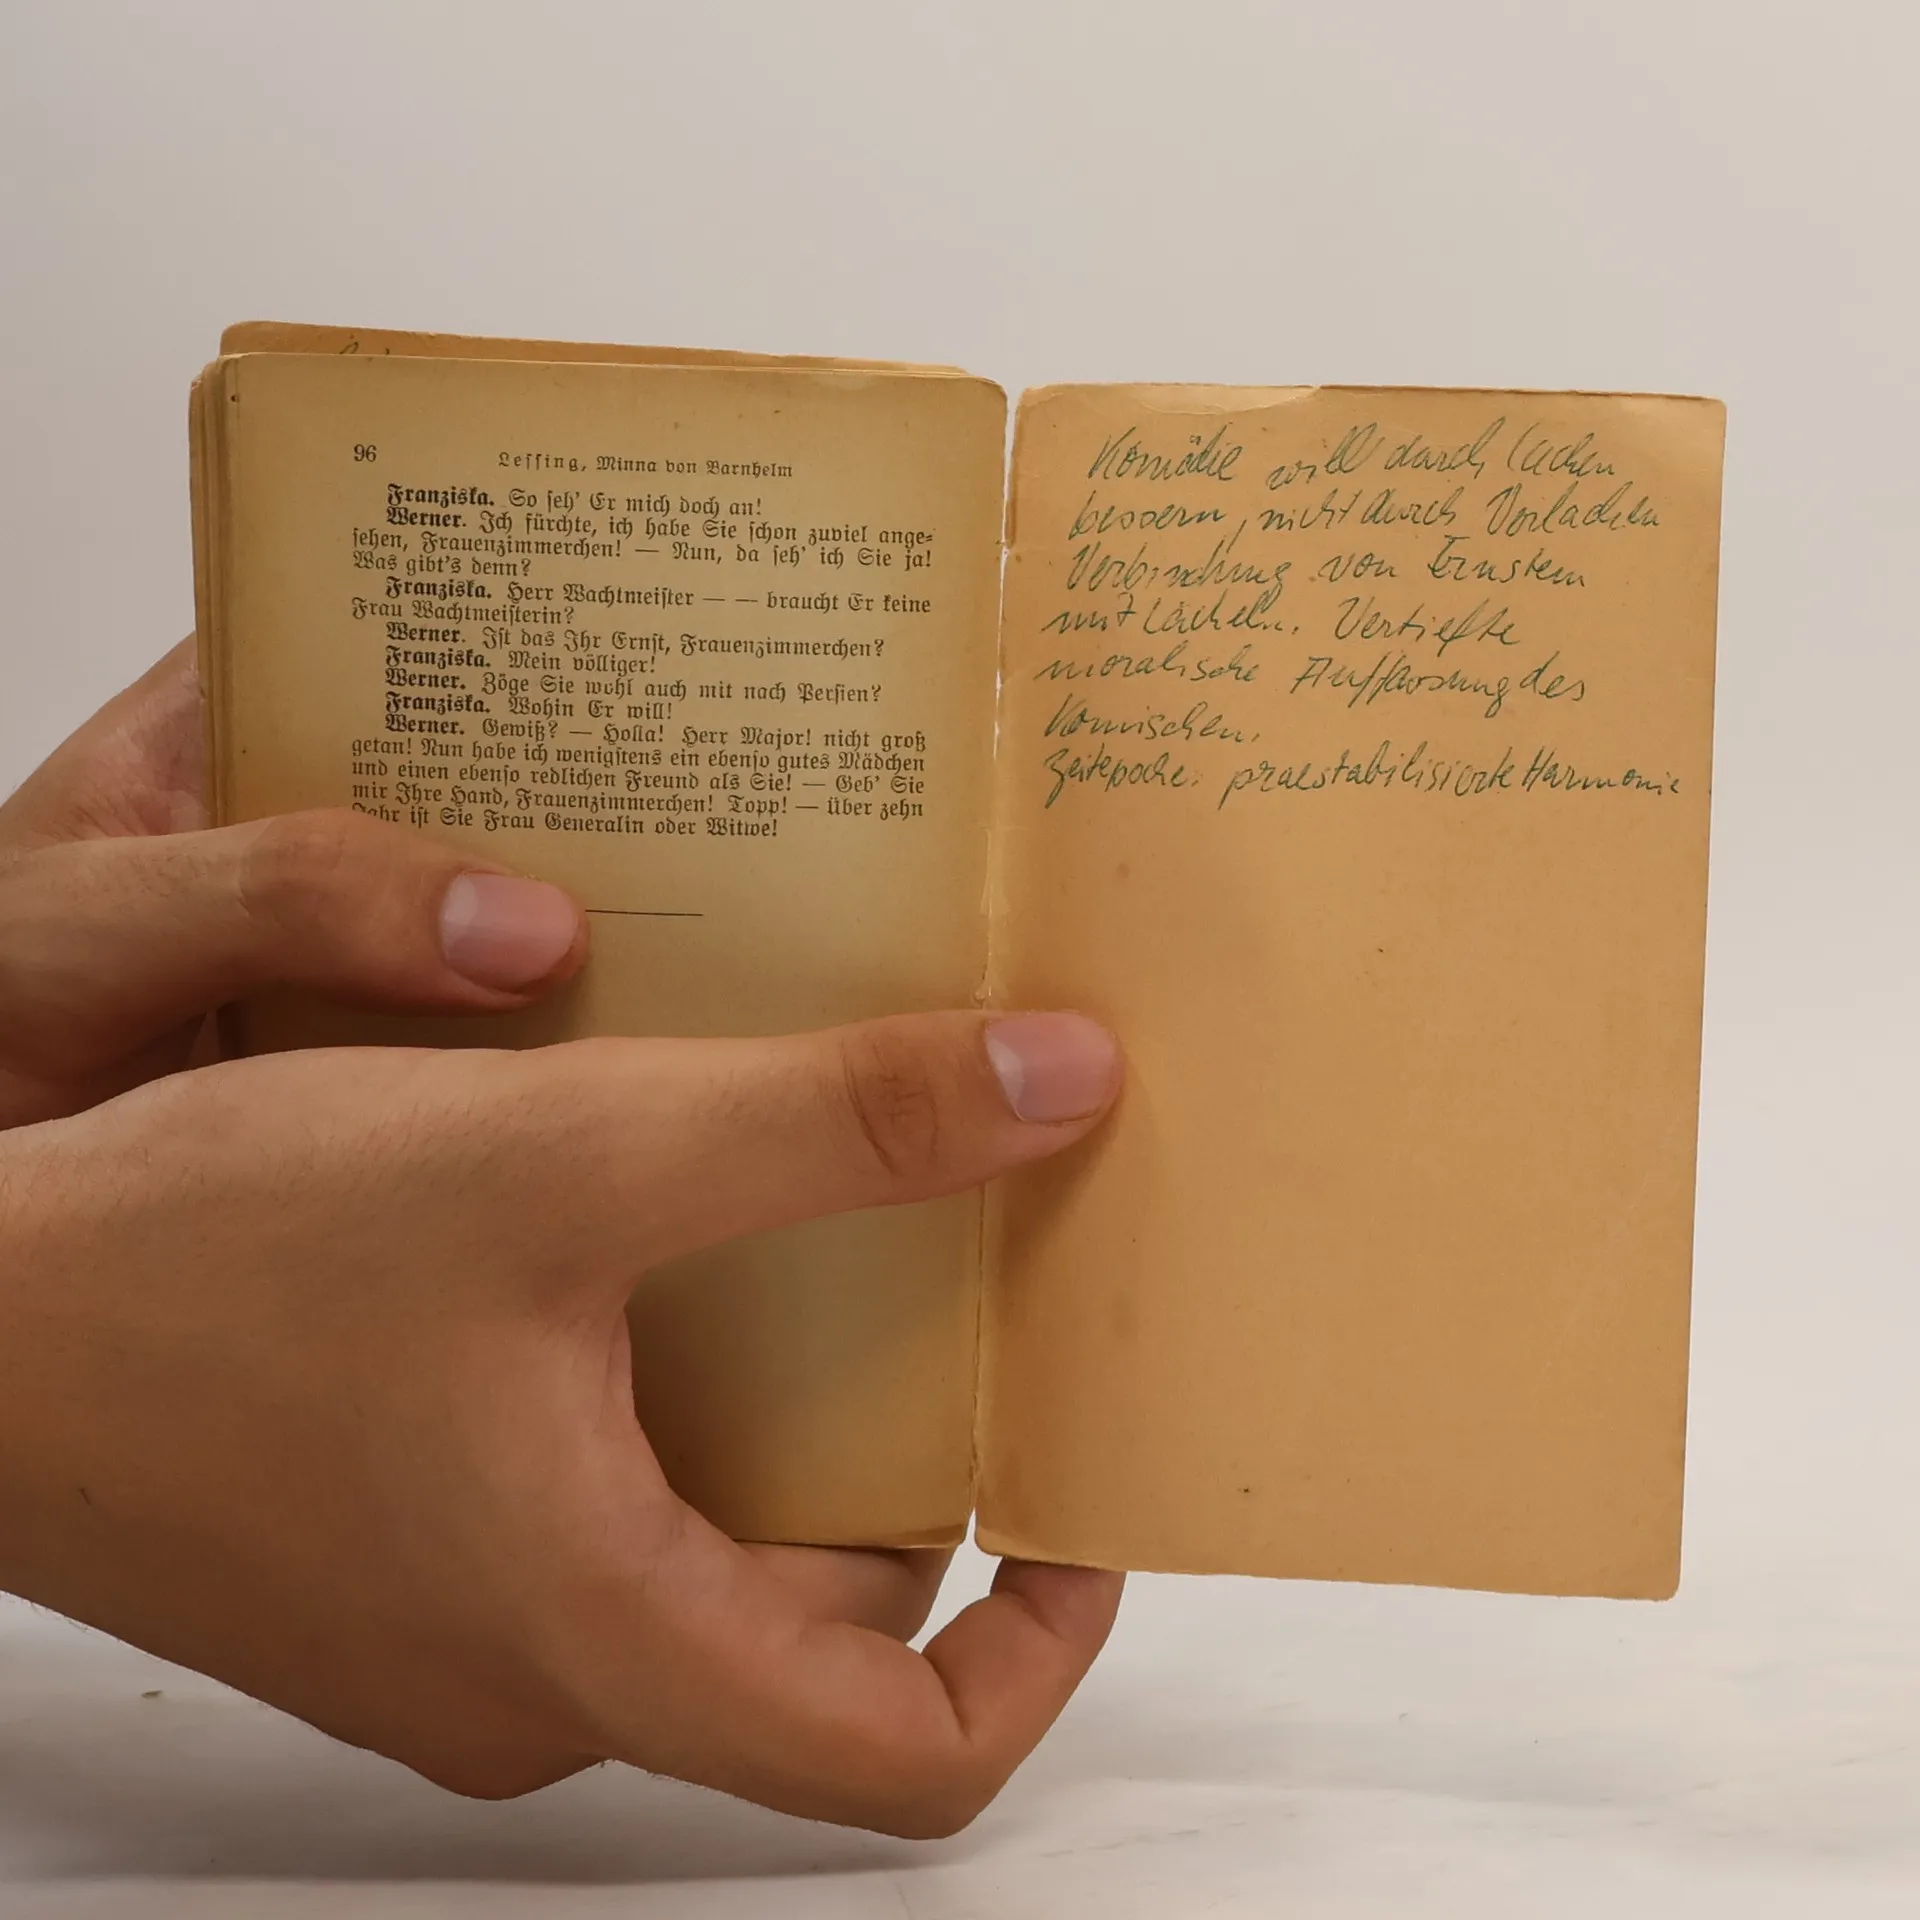 96
Lessing, Minna von Barnhelm
Franziska. So seh' Er mich doch an!
Werner. Ich fürchte, ich habe Sie schon zuviel ange-
sehen, Frauenzimmerchen! — Nun, da seh' ich Sie ja!
Was gibt's denn?
Franziska. Herr Wachtmeister — — braucht Er keine
Frau Wachtmeisterin?
Werner. Ist das Ihr Ernst, Frauenzimmerchen?
Franziska. Mein völliger!
Werner. Zöge Sie wohl auch mit nach Persien?
Franziska. Wohin Er will!
Werner. Gewiß? — Holla! Herr Major! nicht groß
getan! Nun habe ich wenigstens ein ebenso gutes Mädchen
und einen ebenso redlichen Freund als Sie! — Geb' Sie
mir Ihre Hand, Frauenzimmerchen! Topp! — über zehn
Jahr ist Sie Frau Generalin oder Witwe!
Komödie will durch Lachen
bessern, nicht durch Verlachen
Verbindung von Ernstem
mit Lächeln. Vertiefte
moralische Auffassung des
Komischen.
Zeitepoche: praestabilisierte Harmonie